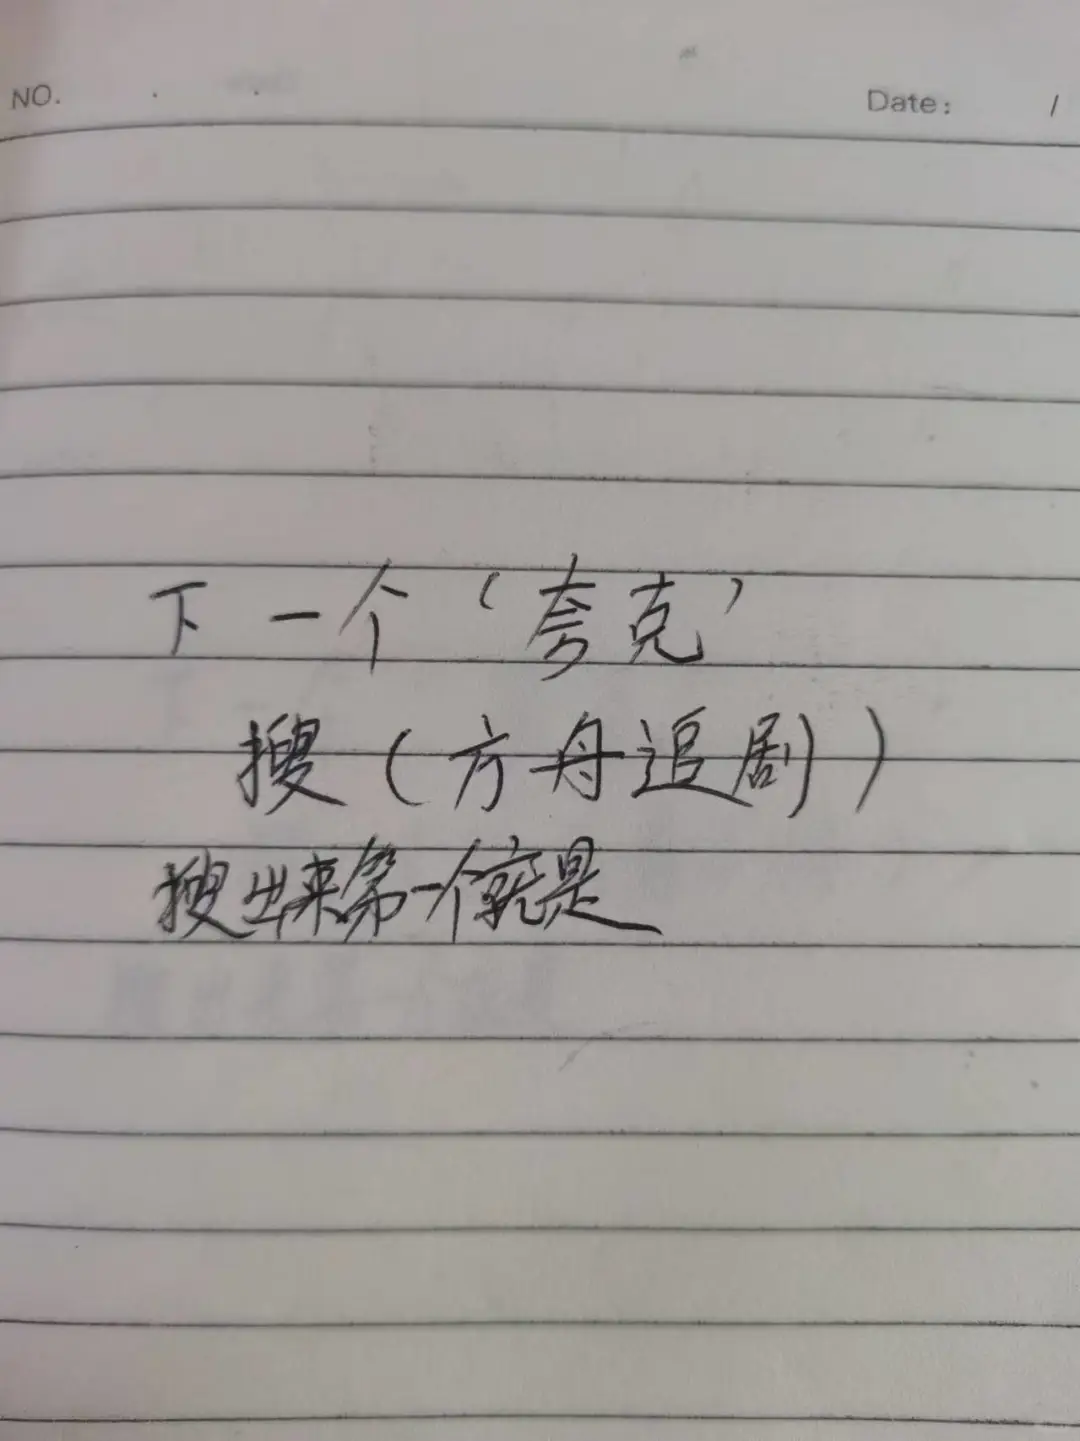 NO. . .
Date: /
下一个‘夸克’
搜(方舟追剧)
搜出来第一个就是